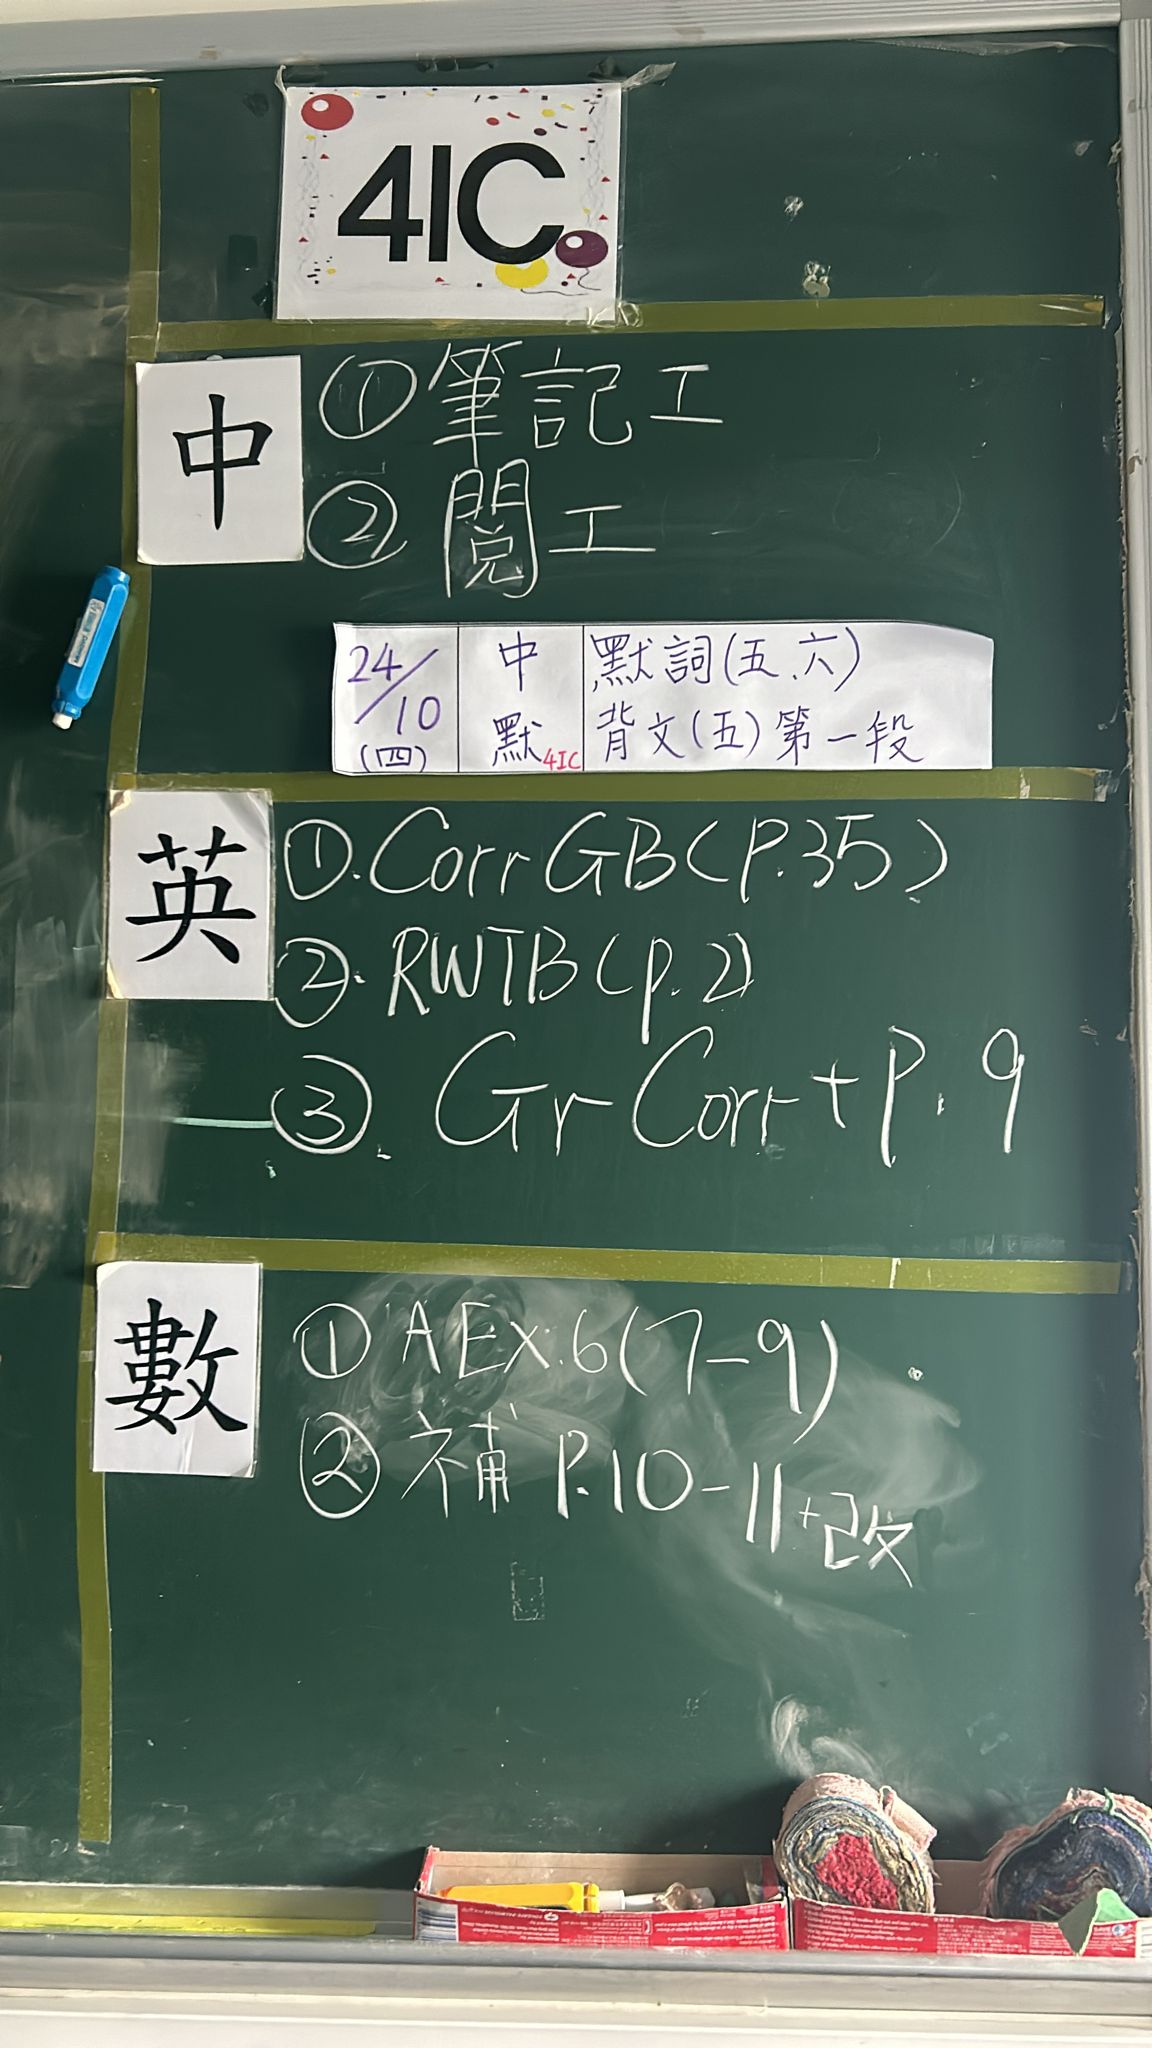 4IC
中
①筆記工
②閱工
24/10 (四) 中默 4IC 默詞(五、六)
背文(五)第一段
英
①.Corr GB(P.35)
②.RWTB(p.2)
③. Gr Corr + P.9
數
①AEx.6(7-9)
②補 P.10-11+改